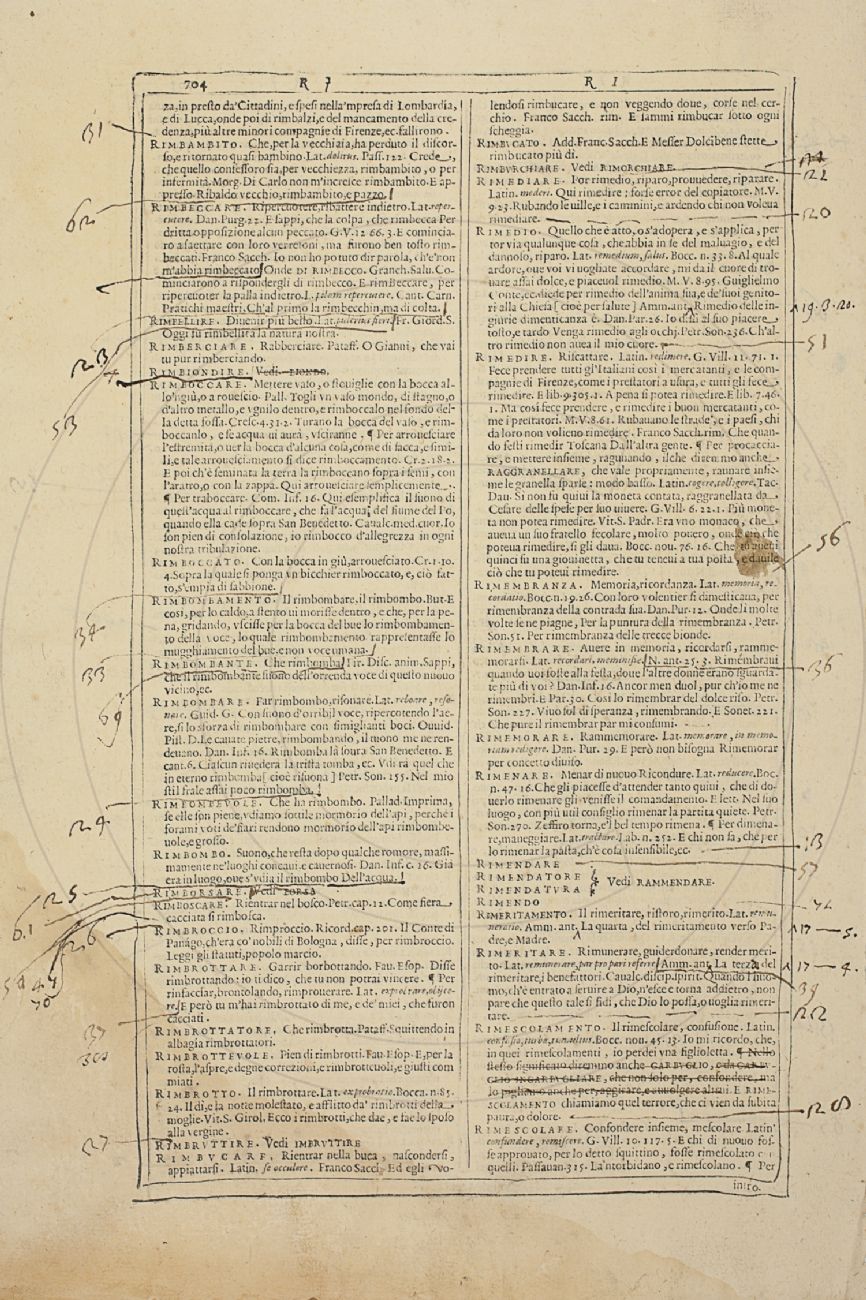 704 R I
R I
za, in presto da' Cittadini, e spesi nella 'mpresa di Lombardia,
e di Lucca, onde poi di rimbalzi, e del mancamento della cre-
denza, più altre minori compagnie di Firenze, ec. fallirono.
RIMBAMBITO. Che, per la vecchiaia, ha perduto il discor-
so, e ritornato quasi bambino. Lat. delirus. Pass. 122. Crede,
che quello confessoro sia, per vecchiezza, rimbambito, o per
infermità. Morg. Di Carlo non m'incresce rimbambito. E ap-
presso. Ribaldo vecchio, rimbambito, e pazzo.
RIMBECCARE. Ripercuotere, ribattere indietro. Lat. reper-
cutere. Dan. Purg. 22. E sappi, che la colpa, che rimbecca Per
dritta opposizione alcun peccato. G. V. 12. 66. 3. E comincia-
ro a saettare con loro verrettoni, ma furono ben tosto rim-
beccati. Franco Sacch. Io non ho potuto dir parola, ch'e' non
m'abbia rimbeccato. Onde DI RIMBECCO. Granch. Salu. Co-
minciarono a rispondergli di rimbecco. E rimbeccare, per
ripercuoter la palla indietro. L. palam repercutere. Cant. Carn.
Pratichi maestri. Ch'al primo la rimbecchin, ma di colta.
RIMBELLIRE. Divenir più bello. Lat. pulcrius fieri. Fr. Giord. S.
Oggi fu rimbellita la natura nostra.
RIMBERCIARE. Rabberciare. Pataff. O Gianni, che vai
tu pur rimberciando.
RIMBIONDIRE. Vedi. BIONDO.
RIMBOCCARE. Mettere vaso, o stoviglie con la bocca al-
lo 'ngiù, o a rovescio. Pall. Togli vn vaso mondo, di stagno, o
d'altro metallo, e vgnilo dentro, e rimboccalo nel fondo del-
la detta fossa. Cresc. 4. 31. 2. Turano la bocca del vaso, e rim-
boccanlo, e se acqua vi aurà, vsciranne. ¶ Per arrouesciare
l'estremità, o uer la bocca d'alcuna cosa, come di sacca, e simi-
li, e tale arrouesciamento si dice rimboccamento. Cr. 2. 18. 2.
E poi ch'è seminata la terra la rimboccano sopra i semi, con
l'aratro, o con la zappa. Qui arrouesciare semplicemente.
¶ Per traboccare. Com. Inf. 16. Qui esemplifica il suono di
quell'acqua al rimboccare, che fa l'acqua del fiume del Po,
quando ella cade sopra San Benedetto. Caualc. med. cuor. Io
son pien di consolazione, io rimbocco d'allegrezza in ogni
nostra tribulazione.
RIMBOCCATO. Con la bocca in giù, arrouesciato. Cr. 1. 10.
4. Sopra la quale si ponga vn bicchier rimboccato, e, ciò fat-
to, s'empia di sabbione.
RIMBOMBAMENTO. Il rimbombare, il rimbombo. But. E
così, per lo caldo, a stento vi morisse dentro, e che, per la pe-
na, gridando, vscisse per la bocca del bue lo rimbombamen-
to della voce, lo quale rimbombamento rappresentasse lo
mugghiamento del bue, e non voce umana.
RIMBOMBANTE. Che rimbomba. Fir. Disc. anim. Sappi,
che il rimbombante suono dell'orrenda voce di questo nuouo
vicino, ec.
RIMBOMBARE. Far rimbombo, risonare. Lat. reboare, reso-
nare. Guid. G. Con suono d'orribil voce, ripercotendo l'ae-
re, si lo sforza di rimbombare con simiglianti boci. Ouuid.
Pist. D. Le cauate pietre, rimbombando, il suono me ne ren-
deuano. Dan. Inf. 16. Rimbomba là soura San Benedetto. E
cant. 6. Ciascun riuederà la trista tomba, ec. Vdirà quel che
in eterno rimbomba [cioè risuona] Petr. Son. 155. Nel mio
stil frale assai poco rimbomba.
RIMBOMBEVOLE. Che ha rimbombo. Pallad. Imprima,
se elle son piene, vdiamo sottile mormorio dell'api, perchè i
forami voti de' fiari rendono mormorio dell'api rimbombe-
uole, e grosso.
RIMBOMBO. Suono, che resta dopo qualche romore, massi-
mamente ne' luoghi concaui, e cauernosi. Dan. Inf. c. 16. Già
era in luogo, oue s'vdia il rimbombo Dell'acqua.
RIMBORSARE. Vedi BORSA
RIMBOSCARE. Rientrar nel bosco. Petr. cap. 12. Come fiera
cacciata si rimbosca.
RIMBROCCIO. Rimproccio. Ricord. cap. 201. Il Conte di
Panàgo, ch'era co' nobili di Bologna, disse, per rimbroccio.
Leggi gli statuti, popolo marcio.
RIMBROTTARE. Garrir borbottando. Fau. Esop. Disse
rimbrottando: io ti dico, che tu non potrai vincere. ¶ Per
rinfacciar, brontolando, rimprouerare. Lat. exprobrare, obijce-
re. E però tu m'hai rimbrottato di me, e de' miei, che furon
cacciati.
RIMBROTTATORE. Che rimbrotta. Pataff. Squittendo in
albagia rimbrottatori.
RIMBROTTEVOLE. Pien di rimbrotti. Fau. Esop. E, per la
rosta, l'aspre, e degne correzioni, e rimbrotteuoli, e giusti com
miati.
RIMBROTTO. Il rimbrottare. Lat. exprobratio. Bocca. n. 85.
24. Il dì, e la notte molestato, e afflitto da' rimbrotti della
moglie. Vit. S. Girol. Ecco i rimbrotti, che dae, e fae lo sposo
alla vergine.
RIMBRUTTIRE. Vedi IMBRUTTIRE
RIMBUCARE. Rientrar nella buca, nascondersi,
appiattarsi. Latin. se occulere. Franco Sacc. Ed egli vo-
lendosi rimbucare, e non veggendo doue, corse nel cer-
chio. Franco Sacch. rim. E sammi rimbucar sotto ogni
scheggia.
RIMBUCATO. Add. Franc. Sacch. E Messer Dolcibene stette
rimbucato più dì.
RIMBVRCHIARE. Vedi RIMORCHIARE.
RIMEDIARE. Por rimedio, riparo, prouuedere, riparare.
Latin. mederi. Qui rimedire: forse error del copiatore. M. V.
9. 23. Rubando le uille, e i cammini, e ardendo chi non voleua
rimediare.
RIMEDIO. Quello che è atto, o s'adopera, e s'applica, per
tor via qualunque cosa, che abbia in se del maluagio, e del
dannoso, riparo. Lat. remedium, salus. Bocc. n. 33. 8. Al quale
ardore, oue voi vi uogliate accordare, mi da il cuore di tro-
uare assai dolce, e piaceuol rimedio. M. V. 8. 95. Guiglielmo
Conte, ec. diede per rimedio dell'anima sua, e de' suoi genito-
ri alla Chiesa [cioè per salute] Amm. ant. Rimedio delle in-
giurie dimenticanza è. Dan. Par. 26. Io dissi al suo piacere
tosto, e tardo Venga rimedio agli occhj. Petr. Son. 236. Ch'al-
tro rimedio non auea il mio cuore.
RIMEDIRE. Riscattare. Latin. redimere. G. Vill. 11. 71. 1.
Fece prendere tutti gl'Italiani così i mercatanti, e le com-
pagnie di Firenze, come i prestatori a usura, e tutti gli fece
rimedire. E lib. 9. 305. 1. A pena si potea rimedire. E lib. 7. 46.
1. Ma così fece prendere, e rimedire i buon mercatanti, co-
me i prestatori. M. V. 8. 61. Rubauano le strade, e i paesi, chi
da loro non volieno rimedire. Franco Sacch. rim. Che quan-
do festi rimedir Toscana Dall'altra gente. ¶ Per procaccia-
re, e mettere insieme, ragunando, il che dicemmo anche
RAGGRANELLARE, che vale propriamente, raunare insie-
me le granella sparse: modo basso. Latin. cogere, colligere. Tac.
Dau. Si non fu quiui la moneta contata, raggranellata da
Cesare delle spese per suo viuere. G. Vill. 6. 22. 1. Più mone-
ta non potea rimedire. Vit. S. Padr. Era vno monaco, che
aueua un suo fratello secolare, molto pouero, onde ciò che
poteua rimedire, sì gli daua. Bocc. nou. 76. 16. Che tu aueui
quinci su una giouinetta, che tu teneui a tua posta, e dauile
ciò che tu poteui rimedire.
RIMEMBRANZA. Memoria, ricordanza. Lat. memoria, re-
cordatio. Bocc. n. 19. 26. Con loro volentier si dimesticaua, per
rimembranza della contrada sua. Dan. Pur. 12. Onde lì molte
volte se ne piagne, Per la puntura della rimembranza. Petr.
Son. 51. Per rimembranza delle trecce bionde.
RIMEMBRARE. Auere in memoria, ricordarsi, ramme-
morarsi. Lat. recordari, meminisse. N. ant. 25. 3. Rimembraui
quando uoi foste alla festa, doue l'altre donne erano sguarda-
te più di voi? Dan. Inf. 16. Ancor men duol, pur ch'io me ne
rimembri. E Par. 30. Così lo rimembrar del dolce riso. Petr.
Son. 227. Viuo sol di speranza, rimembrando. E Sonet. 221.
Che pure il rimembrar par mi consumi.
RIMEMORARE. Rammemorare. Lat. memorare, in memo-
riam redigere. Dan. Pur. 29. E però non bisogna Rimemorar
per concetto diuiso.
RIMENARE. Menar di nuouo Ricondure. Lat. reducere. Bocc.
n. 47. 16. Che gli piacesse d'attender tanto quiui, che di do-
uerlo rimenare gli venisse il comandamento. E lett. Nel suo
luogo, con più util consiglio rimenar la partita quiete. Petr.
Son. 270. Zeffiro torna, e 'l bel tempo rimena. ¶ Per dimena-
re, maneggiare. Lat. tractare. Lab. n. 252. E chi non sa, che per
lo rimenar la pasta, ch'è cosa insensibile, ec.
RIMENDARE
RIMENDATORE
RIMENDATURA
Vedi RAMMENDARE.
RIMENDO
RIMERITAMENTO. Il rimeritare, ristoro, rimerito. Lat. remu-
neratio. Amm. ant. La quarta, del rimeritamento verso Pa-
dre, e Madre.
RIMERITARE. Rimunerare, guiderdonare, render meri-
to. Lat. remunerare, par pro pari referre. Amm. ant. La terza del
rimeritare i benefattori. Caualc. discip. spirit. Quando l'huo-
mo, ch'è entrato a seruire a Dio, n'esce e torna addietro, non
pare che questo tale si fidi, che Dio lo possa, o uoglia rimeri-
tare.
RIMESCOLAMENTO. Il rimescolare, confusione. Latin.
confusio, turba, tumultus. Bocc. non. 45. 13. Io mi ricordo, che,
in quei rimescolamenti, io perdei vna figlioletta. ¶ Nello
stesso significato diremmo anche GARBVGLIO, e da GARBV-
GLIO INGARBVGLIARE, che non solo per, confondere, ma
lo pigliamo anche per, aggirare, e auuolgere altrui. E RIME-
SCOLAMENTO chiamiamo quel terrore, che ci vien da subita
paura, o dolore.
RIMESCOLARE. Confondere insieme, mescolare Latin.
confundere, remiscere. G. Vill. 10. 117. 5. E chi di nuouo fos-
se approuato, per lo detto squittino, fosse rimescolato co i
quelli. Passauan. 315. La 'ntorbidano, e rimescolano. ¶ Per
intro.
31
62
23
53
34
33
69
24
25
61
26
27
22
20
19.9.20.
51
56
36
13
57
17 — 5.
17 — 4.
39
212